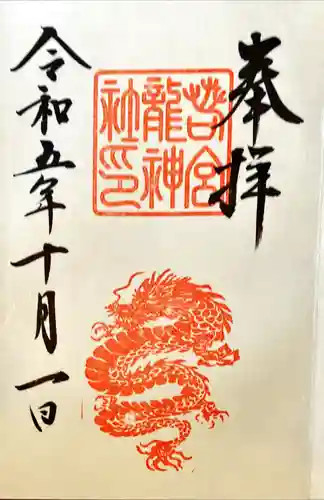 奉拝
若宮
龍神
社印
令和五年十月一日